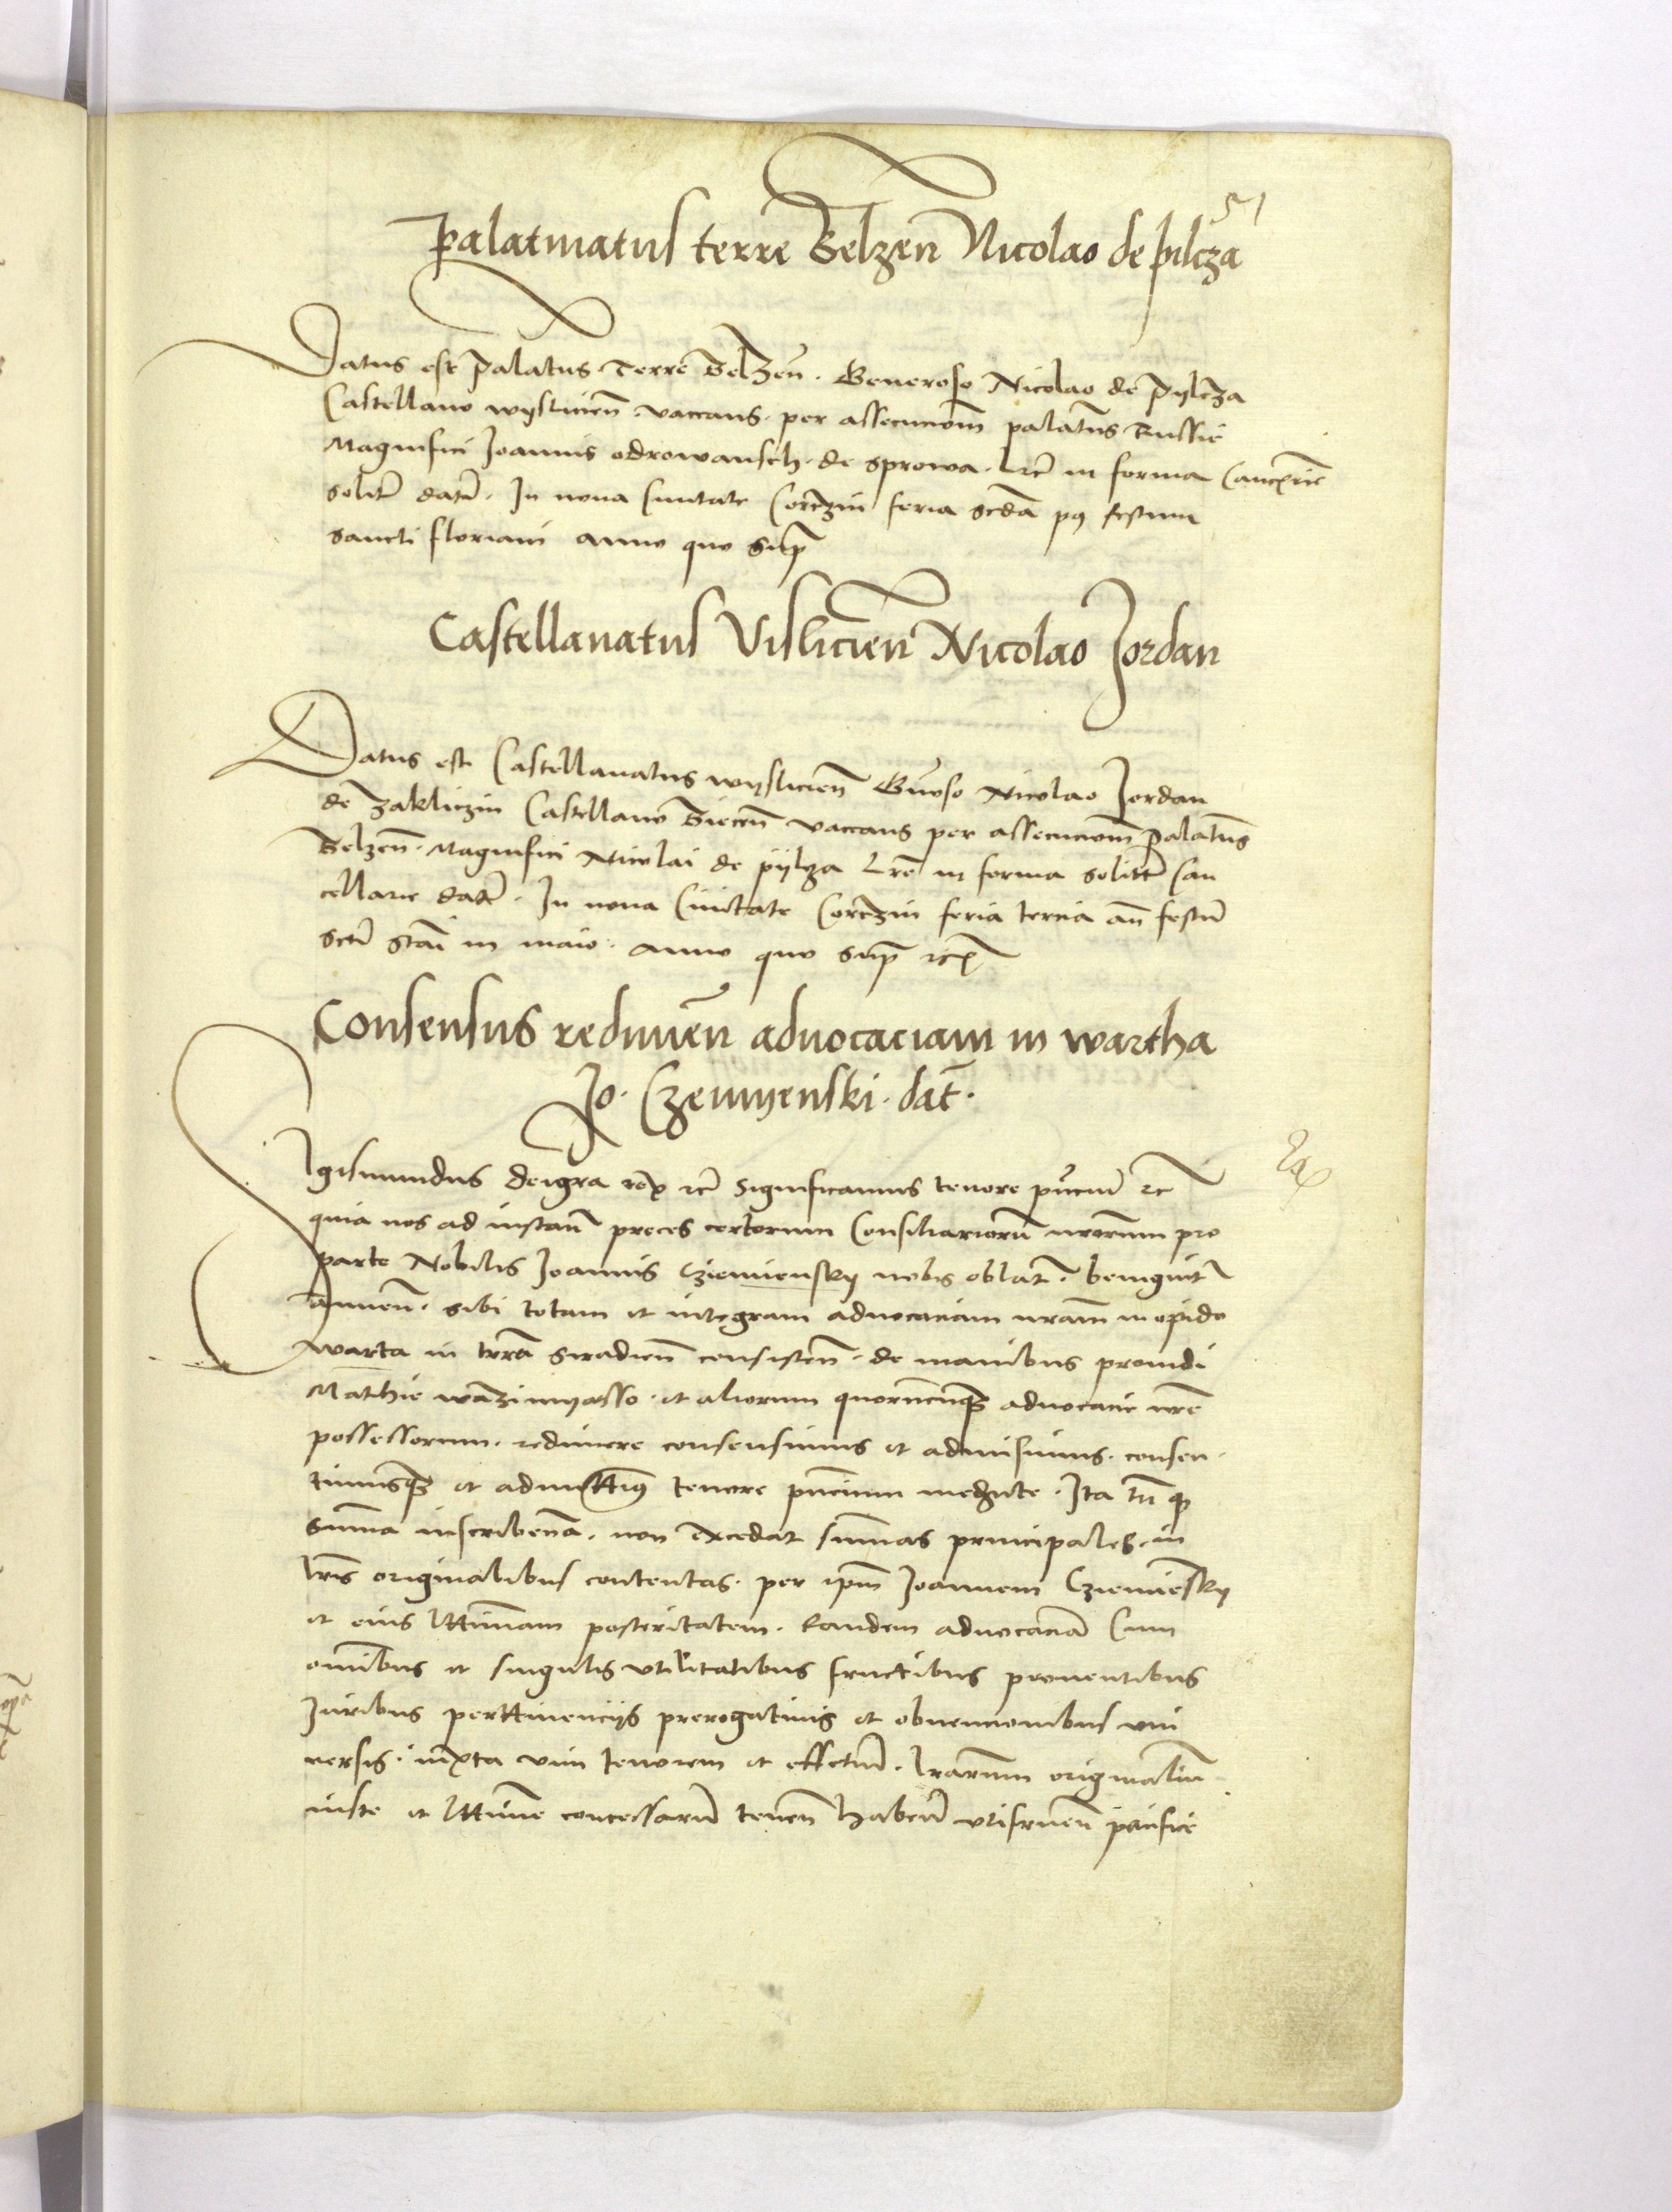 51
Palatinatus terre Belzen̄ Nicolao de pilcza
Datus est palatus terre Belzen̄. Generoso Nicolao de Pylcza
Castellano wysliciēn̄. vaccans. per assecuciom̄ palatus Russie
Magnifici Joannis odrowansch. de sprowa. Lr̄e in forma
solit̄ dat̄. In noua Ciuitate Corczin feria scd̄a pꝰ festum
sancti floriani anno quo supᷓ
Castellanatus Vislicien̄ Nicolao Jordan
Datus est Castellanatus wyslicien̄ Gn̄oso Nicolao Jordan
de Zakliczin Castellano Biecen̄ vaccans per assecuciom̄ palatus
Belzen̄. Magnifici Nicolai de pylcza Lr̄e in forma solitt̄ Can
cellarie dat̄. In noua Ciuitate Corczin feria tercia an̄ festū
scti Stāi in maio. anno quo supᷓ ꝛcꝭ
Consensus redimen̄ aduocaciam in wartha
Jo. Czemyenski. dat̄.
Sigismundus deigra rex ꝛc̄ Significamus tenore pn̄ciū ꝛc̄
quia nos ad instan̄ preces certorum Consiliariorū nrorum pro
parte Nobilis Joannis Cziemiensky nobis oblat̄. benignit̄
annuen̄. sibi totam et integram aduocaciam nram̄ in opido
warta in terra Siradien̄ consisten̄. de manibus prouidi
Mathie et aliorum quorūcunqꝫ aduocacie nr̄e
possessorum. redimere consensimus et admisimus. consen
timusqꝫ et admittimꝰ tenore pn̄cium mediante. Ita tn̄ qꝫ
summa inscribenda. non excedat summas principales. in
lr̄is originalibus contentas. per ipm̄ Joannem Cziemiēsky
et eius lttimam posteritatem. Eandem aduocaciā Cum
omībus et singulis vtilitatibus fructibus prouentibus
Juribus perttinencijs prerogatiuis et obuencionibus vni
uersis. iuxta vim tenorem et effectū. lrarum originaliū
iuste et lttime concessarū tenen̄ haben̄ vtifruen̄ pacifice